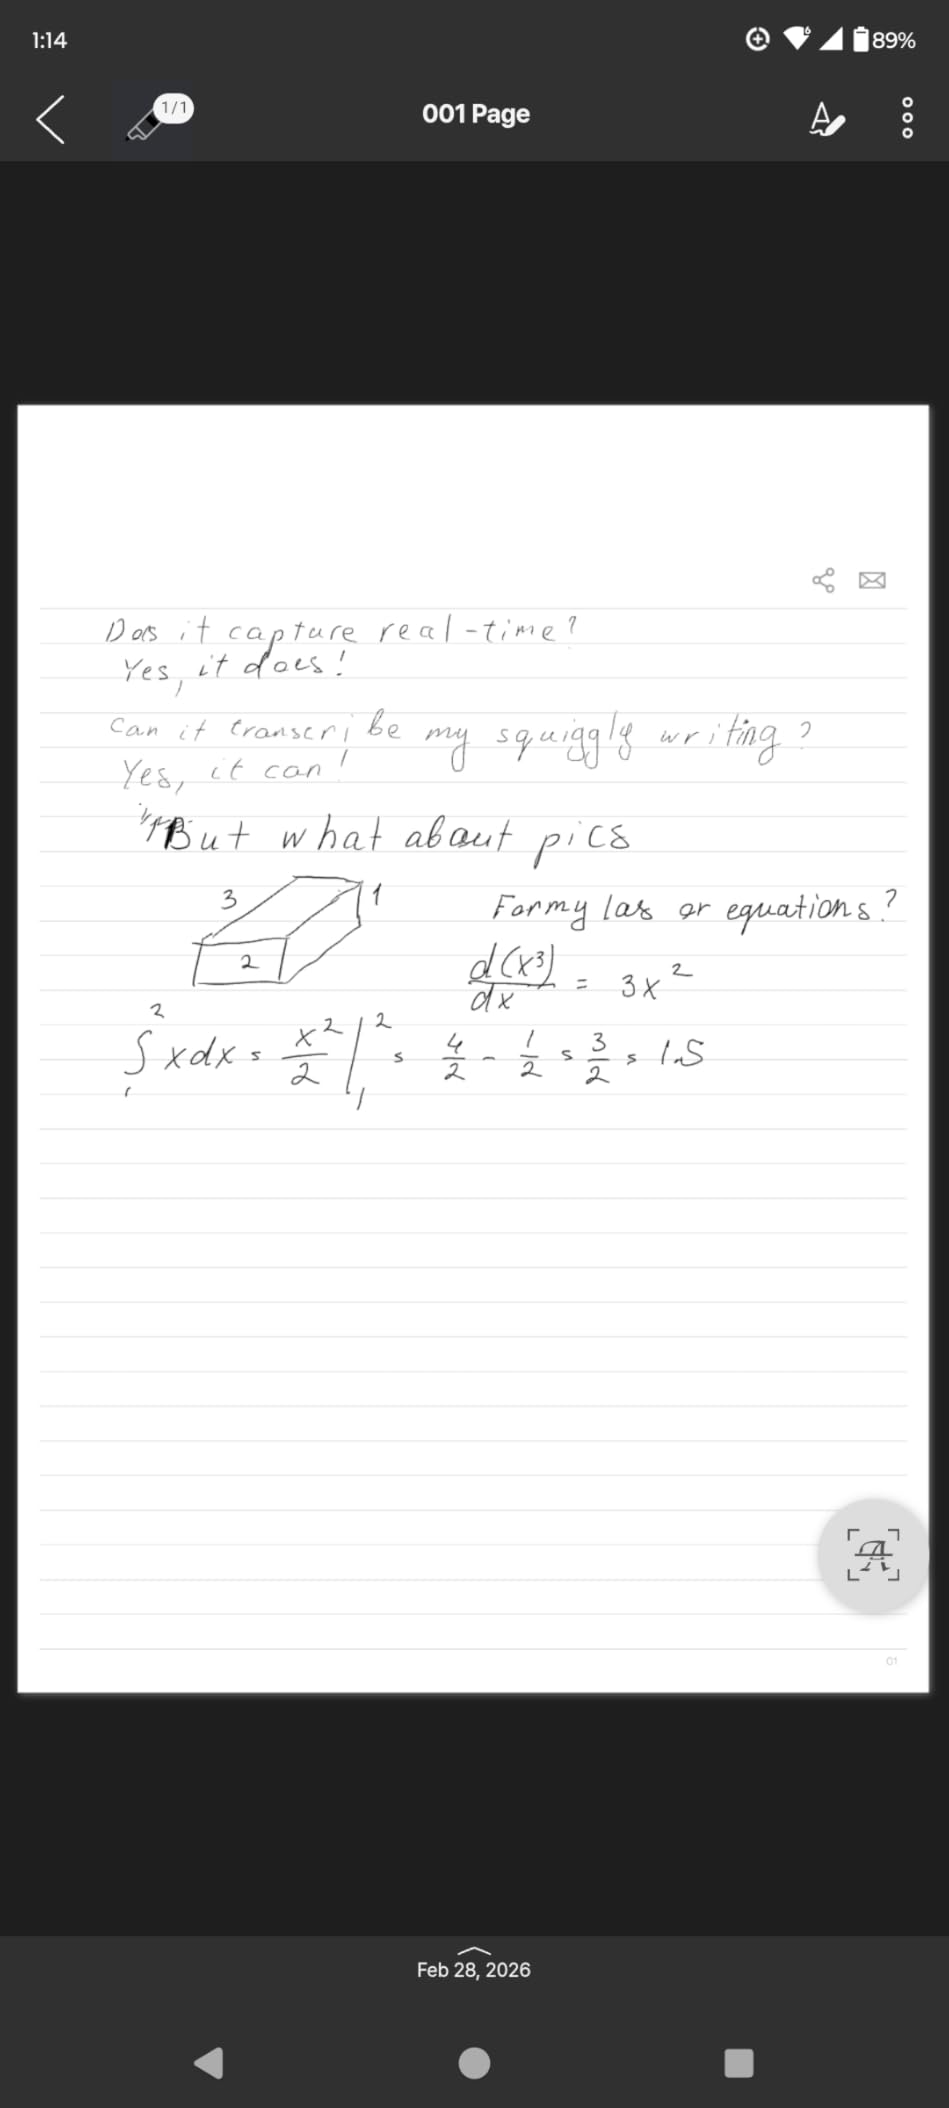 1:14
89%
1/1
001 Page
Does it capture real-time?
Yes, it does!
Can it transcribe my squiggly writing?
Yes, it can!
But what about pics
3
1
2
Formylas or equations?
d(x³)/dx = 3x²
∫₁² xdx = x²/2 |₁² = 4/2 - 1/2 = 3/2 = 1.5
01
Feb 28, 2026